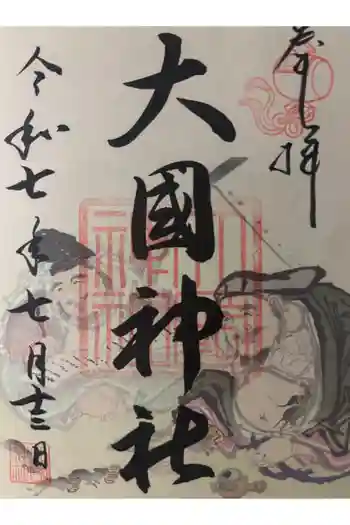 奉拝
大國神社
令和七年七月十三日